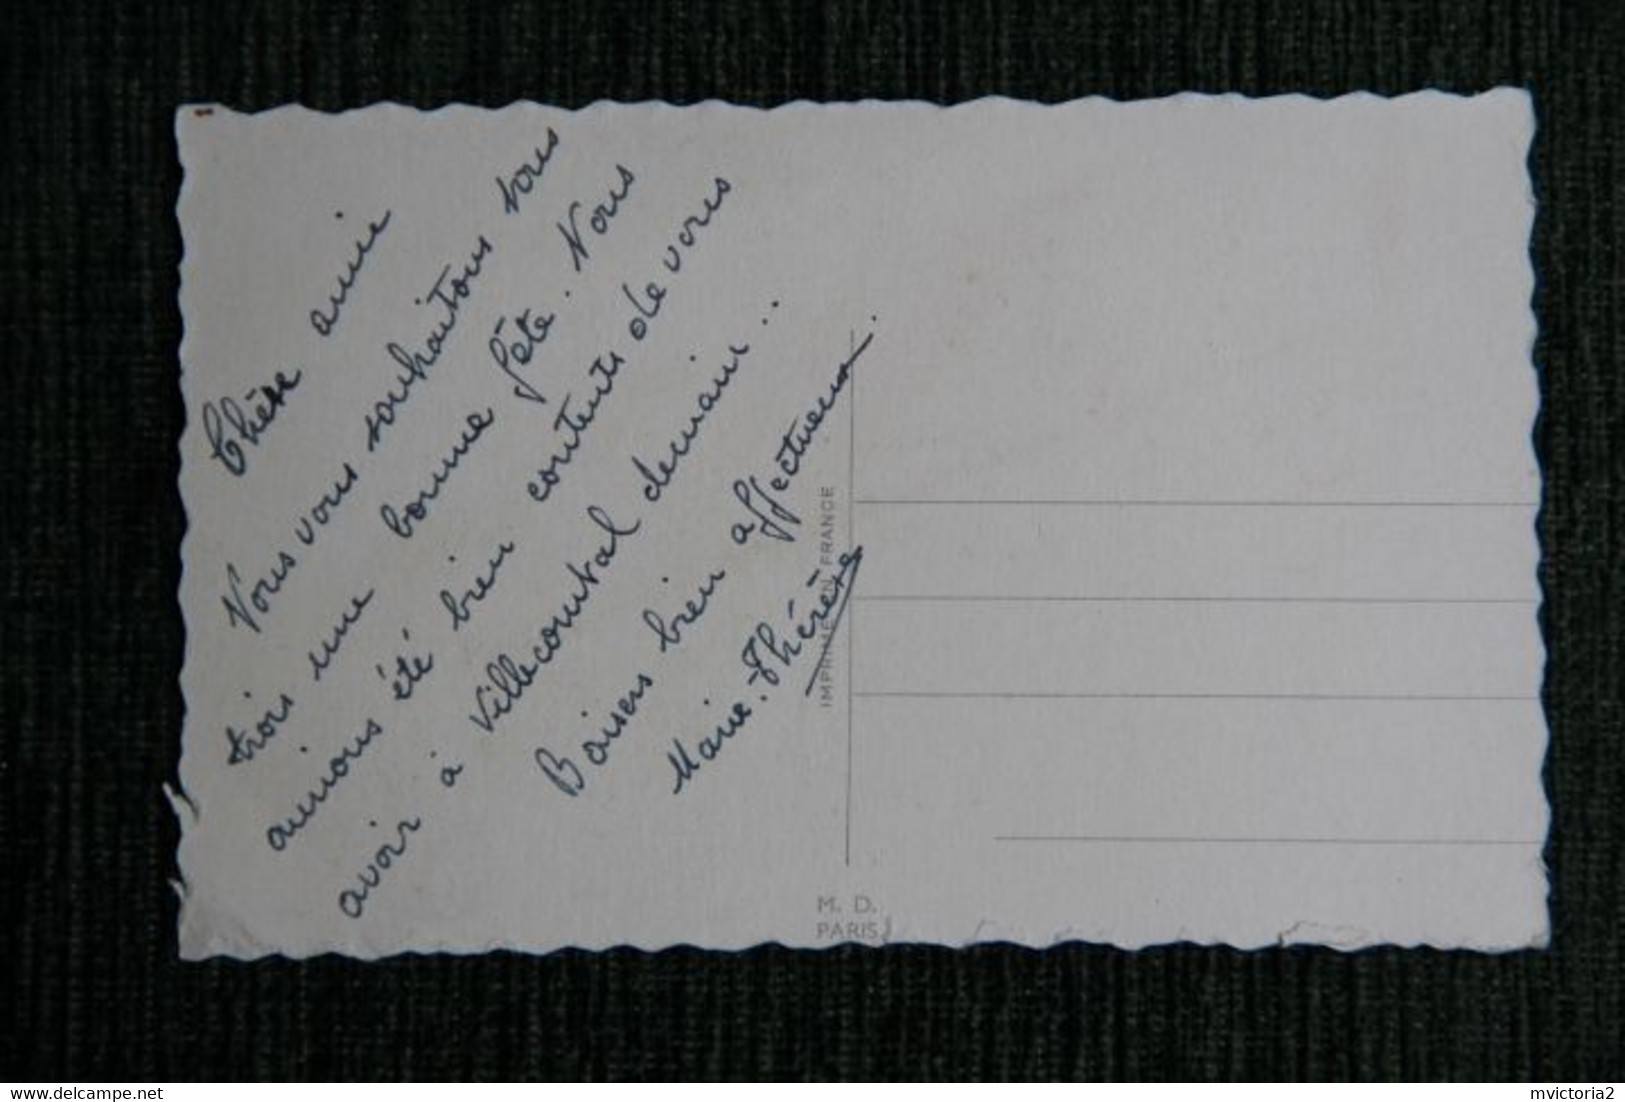 Chère amie
Nous vous souhaitons tous
trois une bonne fête. Nous
aurions été bien contents de vous
avoir à Villecomtal demain..
Baisers bien affectueux.
Marie-Thérèse
IMPRIMÉ EN FRANCE
M. D.
PARIS
delcampe.net
mvictoria2